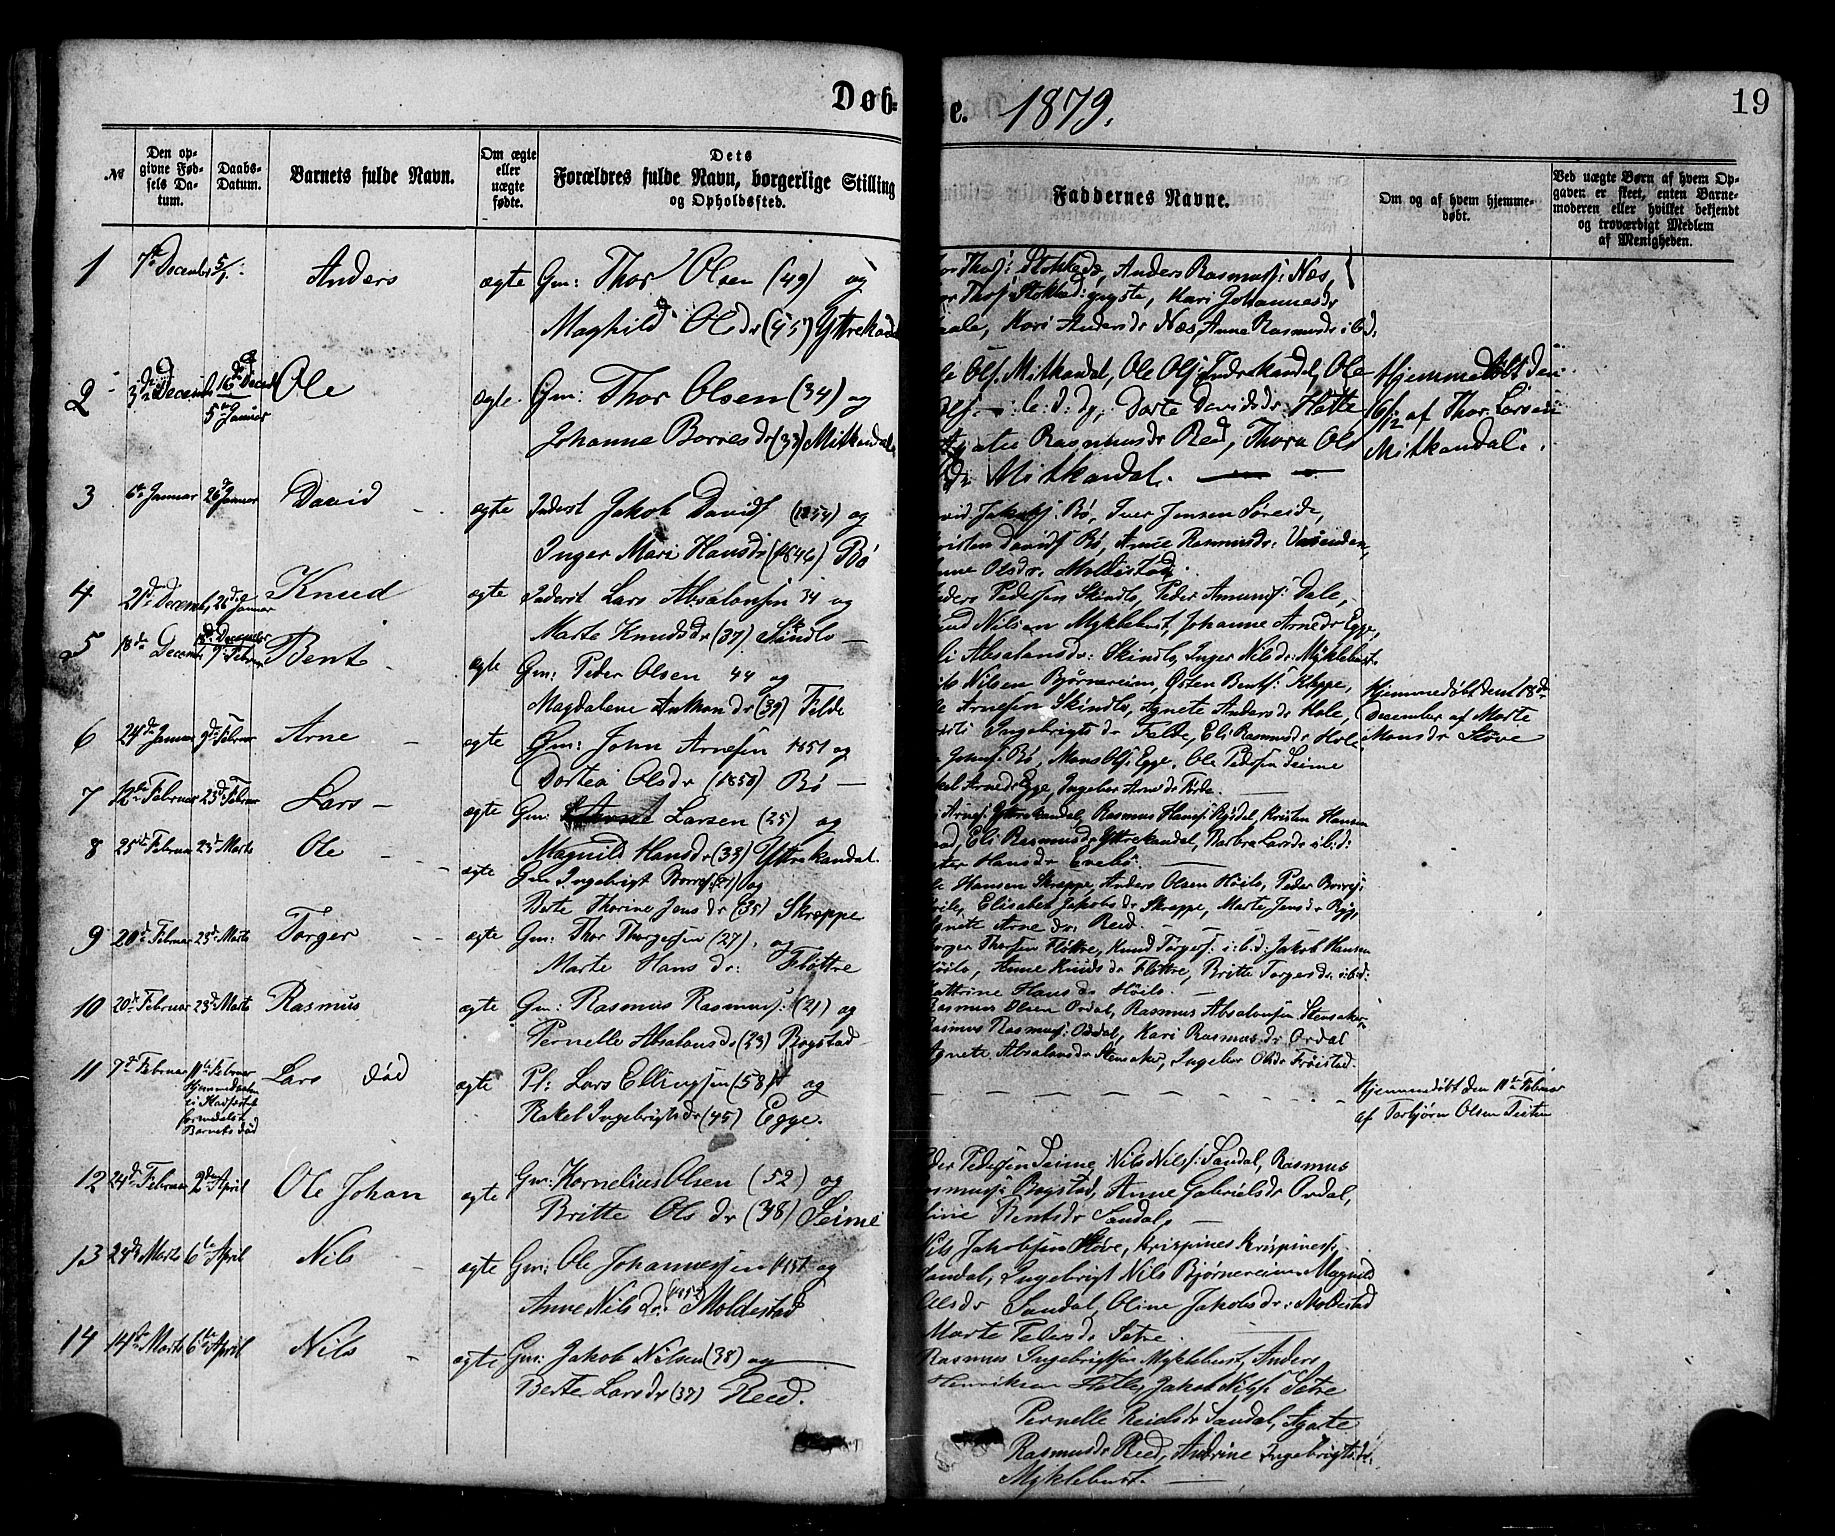 Døb-
e. 1879.
19
№
Den op-
givne Fød-
sels Da-
tum.
Daabs-
Datum.
Barnets fulde Navn.
Om ægte
eller
uægte
fødte.
Dets
Forældres fulde Navn, borgerlige Stilling
og Opholdssted.
Faddernes Navne.
Om og af hvem hjemme-
døbt.
Ved uægte Børn af hvem Op-
gaven er skeet, enten Barne-
moderen eller hvilket bekjendt
og troværdigt Medlem
af Menigheden.
1 7de December 5/1 Anders ægte Gm: Thor Olsen (49) og
Maghild Olsdr (45) Yttrekandal
Anders Rasmuss: Næs,
Kari Johannesdr
Kari Andersdr Næs, Anne Rasmusdr i b d.
2 3de December 16de Decemb Ole ægte Gm: Thor Olsen (34) og
5te Januar
Johanne Borresdr (33) Mitkandal
Ols. Mitkandal, Ole Ols. Indrekandal, Ole
Dorte Davidsdr Hatte
Rasmusdr Reed, Thora Ols
dr Mitkandal.
Hjemmedøbt den
16/12 af Thor Larsen
Mitkandal.
3 6te Januar 26de Januar David ægte Inderst Jakob Davids (1854) og
Inger Mari Hansdr (1846) Bø
Jakobs. Bø, Iver Jensen Søreide,
Davids Bø, Anne Rasmusdr
Olsdr Moldestad.
4 21de Decemb. 26de Januar Knud ægte Inderst Lars Absalonsen 34 og
Marte Knudsdr (37) Skindlo
Pedersen Skindlo, Peder Amunds. Dale,
Nilsen Myklebust, Johanne Arnedr Egge,
Absalonsdr Skindlo, Inger Nilsdr Myklebust
5 18de Decemb. 18de December Bent ægte Gm: Peder Olsen 44 og
9de Februar
Magdalene (39) Felde
Nilsen Bjørnereim, Østen Bents. Kleppe,
Arnesen Skindlo, Agnete Andersdr Hole,
Ingebrigtsdr Felde, Eli Rasmusdr Hole
Hjemmedøbt den 18de
December af Marte
Monsdr Støve
6 24de Januar 9de Februar Arne ægte Gm: John Arnesen 1851 og
Dortea Olsdr (1850) Bø
Johns. Bø, Mons Ols. Egge, Ole Pedersen Seime
Arnedr Egge, Ingeber Arnedr
7 12te Februar 23de Februar Lars ægte Gm: Larsen (25) og
Magnild Hansdr (33) Yttrekandal
Arnes. Yttrekandal, Rasmus Hans. Rysdal, Kristen Hansen
Eli Rasmusdr Yttrekandal, Barbra Larsdr i b d:
Hansdr Evebø.
8 25de Februar 23de Marts Ole ægte Gm Ingebrigt Borres. og
Berte Thorine Jensdr (35) Skreppe
Hansen Skreppe, Anders Olsen Høilo, Peder Borres.
Elisabet Jakobsdr Skreppe, Marte Jensdr Ryg,
Agnete Arnedr Reed.
9 20de Februar 23de Marts Torger ægte Gm: Thor Thorgersen (27) og
Marte Hansdr: Fløttre
Torger Thorsen Fløttre, Knud Torgers. i b d: Jakob Hansen
Høilo, Anne Knudsdr Fløttre, Britte Torgersdr i b d:
Kattrine Hansdr Høilo.
10 20de Februar 23de Marts Rasmus ægte Gm: Rasmus Rasmus. (21) og
Pernelle Absalonsdr (23) Bogstad
Rasmus Olsen Ordal, Rasmus Absalonsen Stensaker
Rasmus Rasmuss. Ordal, Kari Rasmusdr Ordal
Agnete Absalonsdr Stensaker, Ingeber Olsdr Frøistad.
11 7de Februar 11te Februar Lars død ægte Pl: Lars Ellingsen (58) og
Hjemmedøbt
formedelst
Barnets død
Rakel Ingebrigtsdr (45) Egge.
Hjemmedøbt den 11te Februar
af Torbjørn Olsen Teiten
12 24de Februar 2den April Ole Johan ægte Gm: Kornelius Olsen (52) og
Britte Olsdr (38) Seime
Peder Pedersen Seime, Nils Nils. Sandal, Rasmus
Rasmuss. Bogstad, Anne Gabrielsdr Ordal,
Bentsdr Sandal.
13 24de Marts 6te April Nils ægte Gm: Ole Johannessen 1851 og
Anne Nilsdr: (1852) Moldestad
Nils Jakobsen Støve, Krispines Krispines.
Sandal, Ingebrigt Nils Bjørnereim, Magnild
Olsdr Sandal, Oline Jakobsdr: Moldestad
Marte Pedersdr Sætre.
14 14de Marts 6te April Nils ægte Gm: Jakob Nilsen (38) og
Berte Larsdr (37) Reed.
Rasmus Ingebrigtsen Myklebust, Anders
Henriksen Hatle, Jakob Nils. Sætre
Pernelle Reidsdr Sandal, Agate
Rasmusdr Reed, Andrine Ingebrigtsdr
Myklebust.